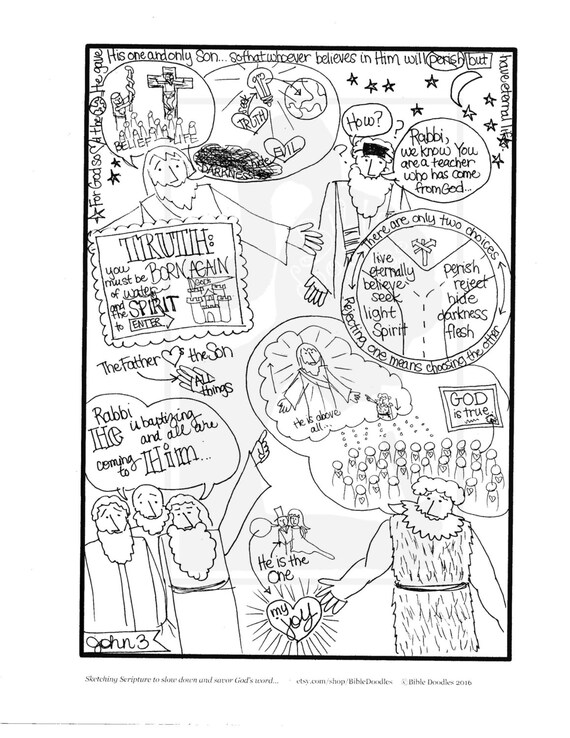 For God so ♡ the He gave
His one and only Son... so that whoever believes in Him will perish but
have eternal life
BELIEF
TRUTH
EVIL
DARKNESS
How?
?
?
Rabbi,
we know You
are a teacher
who has come
from God...
TRUTH:
you
must be BORN AGAIN
of water
and the SPIRIT
to ENTER
God's
There are only two choices
Rejecting one means choosing the other
live
eternally
believe
seek
light
Spirit
perish
reject
hide
darkness
flesh
The Father ♡ the Son
ALL
things
He is above
all...
GOD
is true
Rabbi
HE is baptizing
and all are
coming
to Him...
He is the
One
my
joy
John 3
Sketching Scripture to slow down and savor God's word... etsy.com/shop/BibleDoodles ©Bible Doodles 2016